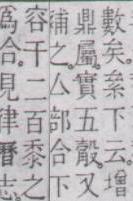 數矣。絫下云。增
鼎屬實五觳。又
補之。亼部合下
容千二百黍之
爲合。見律曆志。